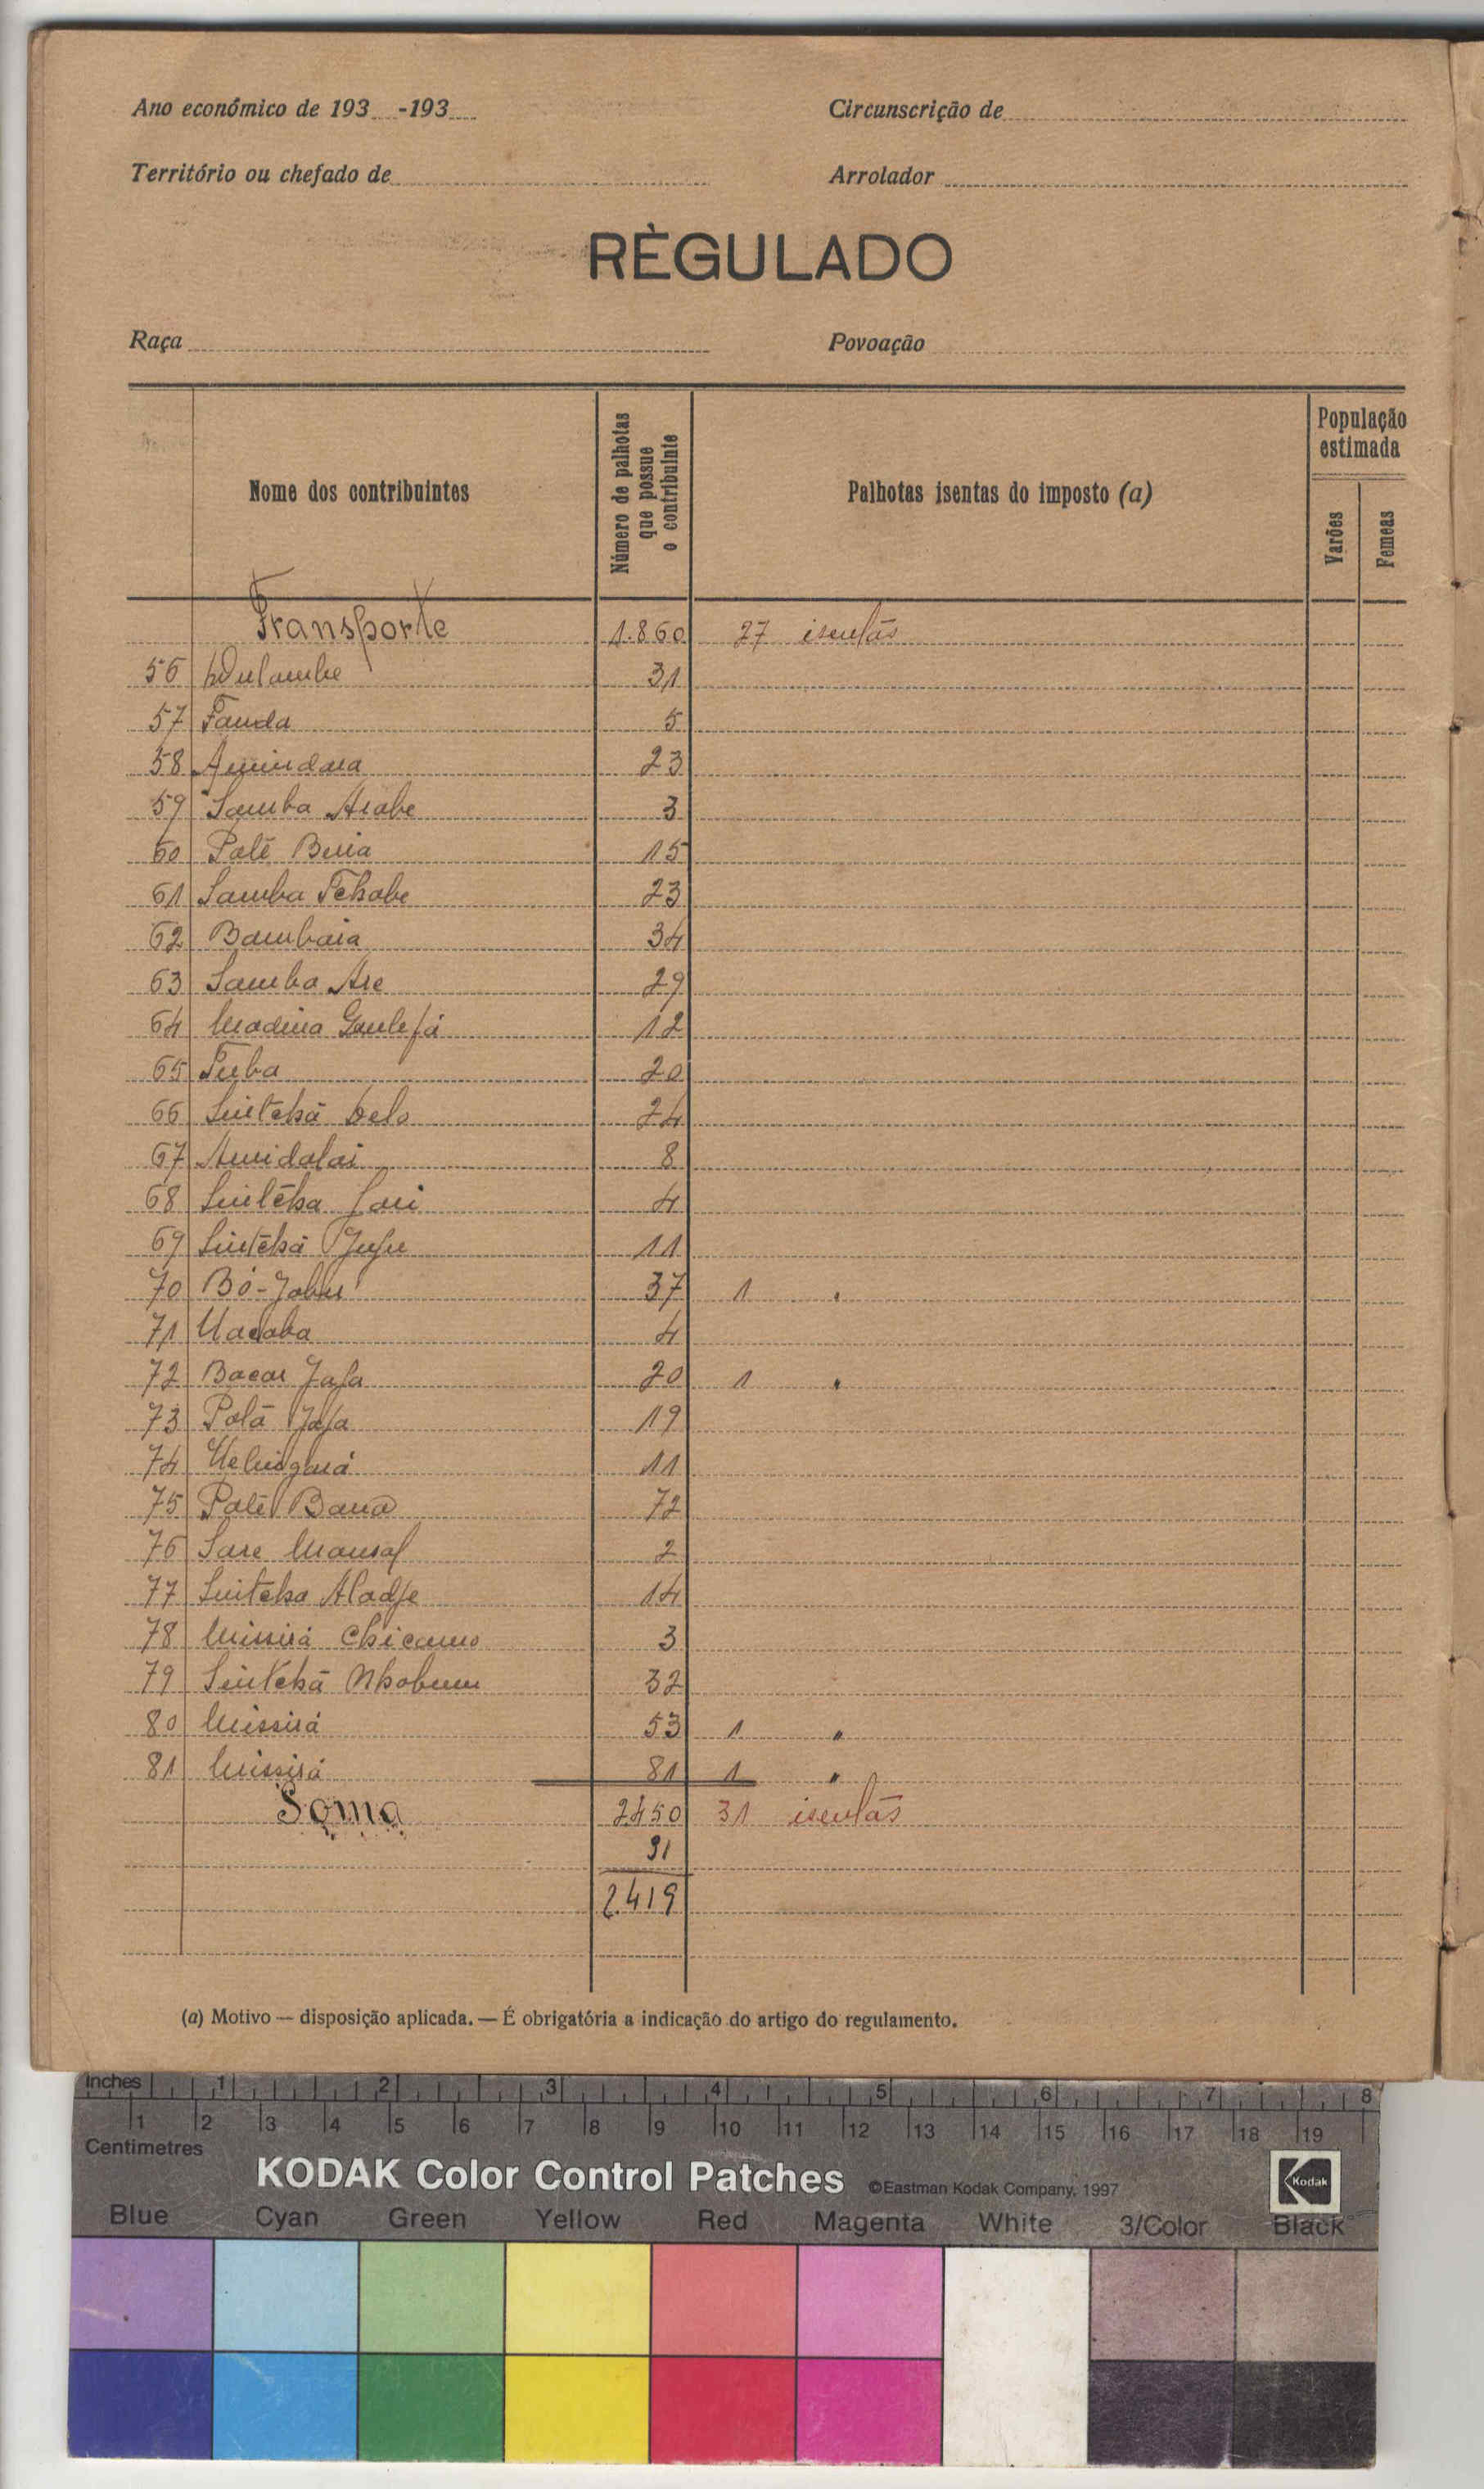 Ano económico de 193 -193
Circunscrição de
Território ou chefado de
Arrolador
RÈGULADO
Raça
Povoação
Nome dos contribuintes
Número de palhotas que possue o contribuinte
Palhotas isentas do imposto (a)
População estimada
Varões
Femeas
Transporte 1.860 27 isentas
56 31
57 Fanda 5
58 23
59 Samba 3
60 Patê 15
61 Samba Tchobe 23
62 Bambaia 34
63 Samba 29
64 Madina 12
65 Tuba 20
66 Sintchã 24
67 Amidalai 8
68 Sintcha 4
69 Sintchã Jufu 11
70 Bó-Jobu 37 1 "
71 4
72 Bacar Jafa 20 1 "
73 Polã Jafa 19
74 11
75 Patê Bana 72
76 Sare Mansaf 2
77 Sintcha Aladje 14
78 Missirá Chicamo 3
79 Sintchã Nhobum 32
80 Missirá 53 1 "
81 Missirá 81 1 "
Soma 2450 31 isentas
31
2.419
(a) Motivo — disposição aplicada. — É obrigatória a indicação do artigo do regulamento.
Inches 1 2 3 4 5 6 7 8
1 2 3 4 5 6 7 8 9 10 11 12 13 14 15 16 17 18 19
Centimetres
KODAK Color Control Patches ©Eastman Kodak Company, 1997 Kodak
Blue Cyan Green Yellow Red Magenta White 3/Color Black